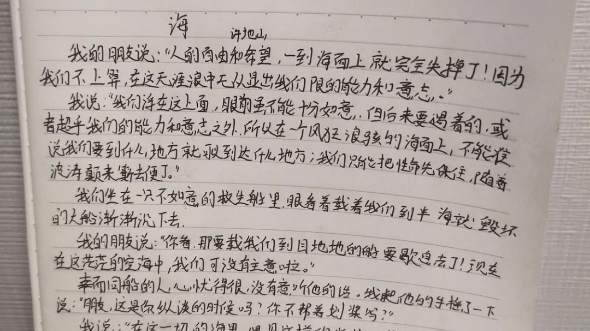 海
许地山
我的朋友说:"人的自由和希望,一到海面上就完全失掉了!因为
我们不上算,在这天涯浪中无从显出我们有限的能力和意志。"
我说:"我们浮在这上面,眼前虽不能十分如意,但后来要遇着的,或
者超乎我们的能力和意志之外。所以在一个风狂浪骇的海面上,不能准
说我们要到什么地方就达到什么地方;我们只能把性命先保住,随着
波涛颠来簸去便了。"
我们坐在一只不如意的救生船里,眼看着载着我们到半海就毁坏
的大船渐渐沉下去。
我的朋友说:"你看,那要载我们到目地地的船要歇息去了!现在
在这茫茫的空海中,我们可没有主意啦。"
幸而同船的人,心忧得很,没有意听他的话。我把他的手摇了一下
说:"朋友,这是你纵谈的时候吗?你不帮着划桨吗?"
我说:"在这一切的海里